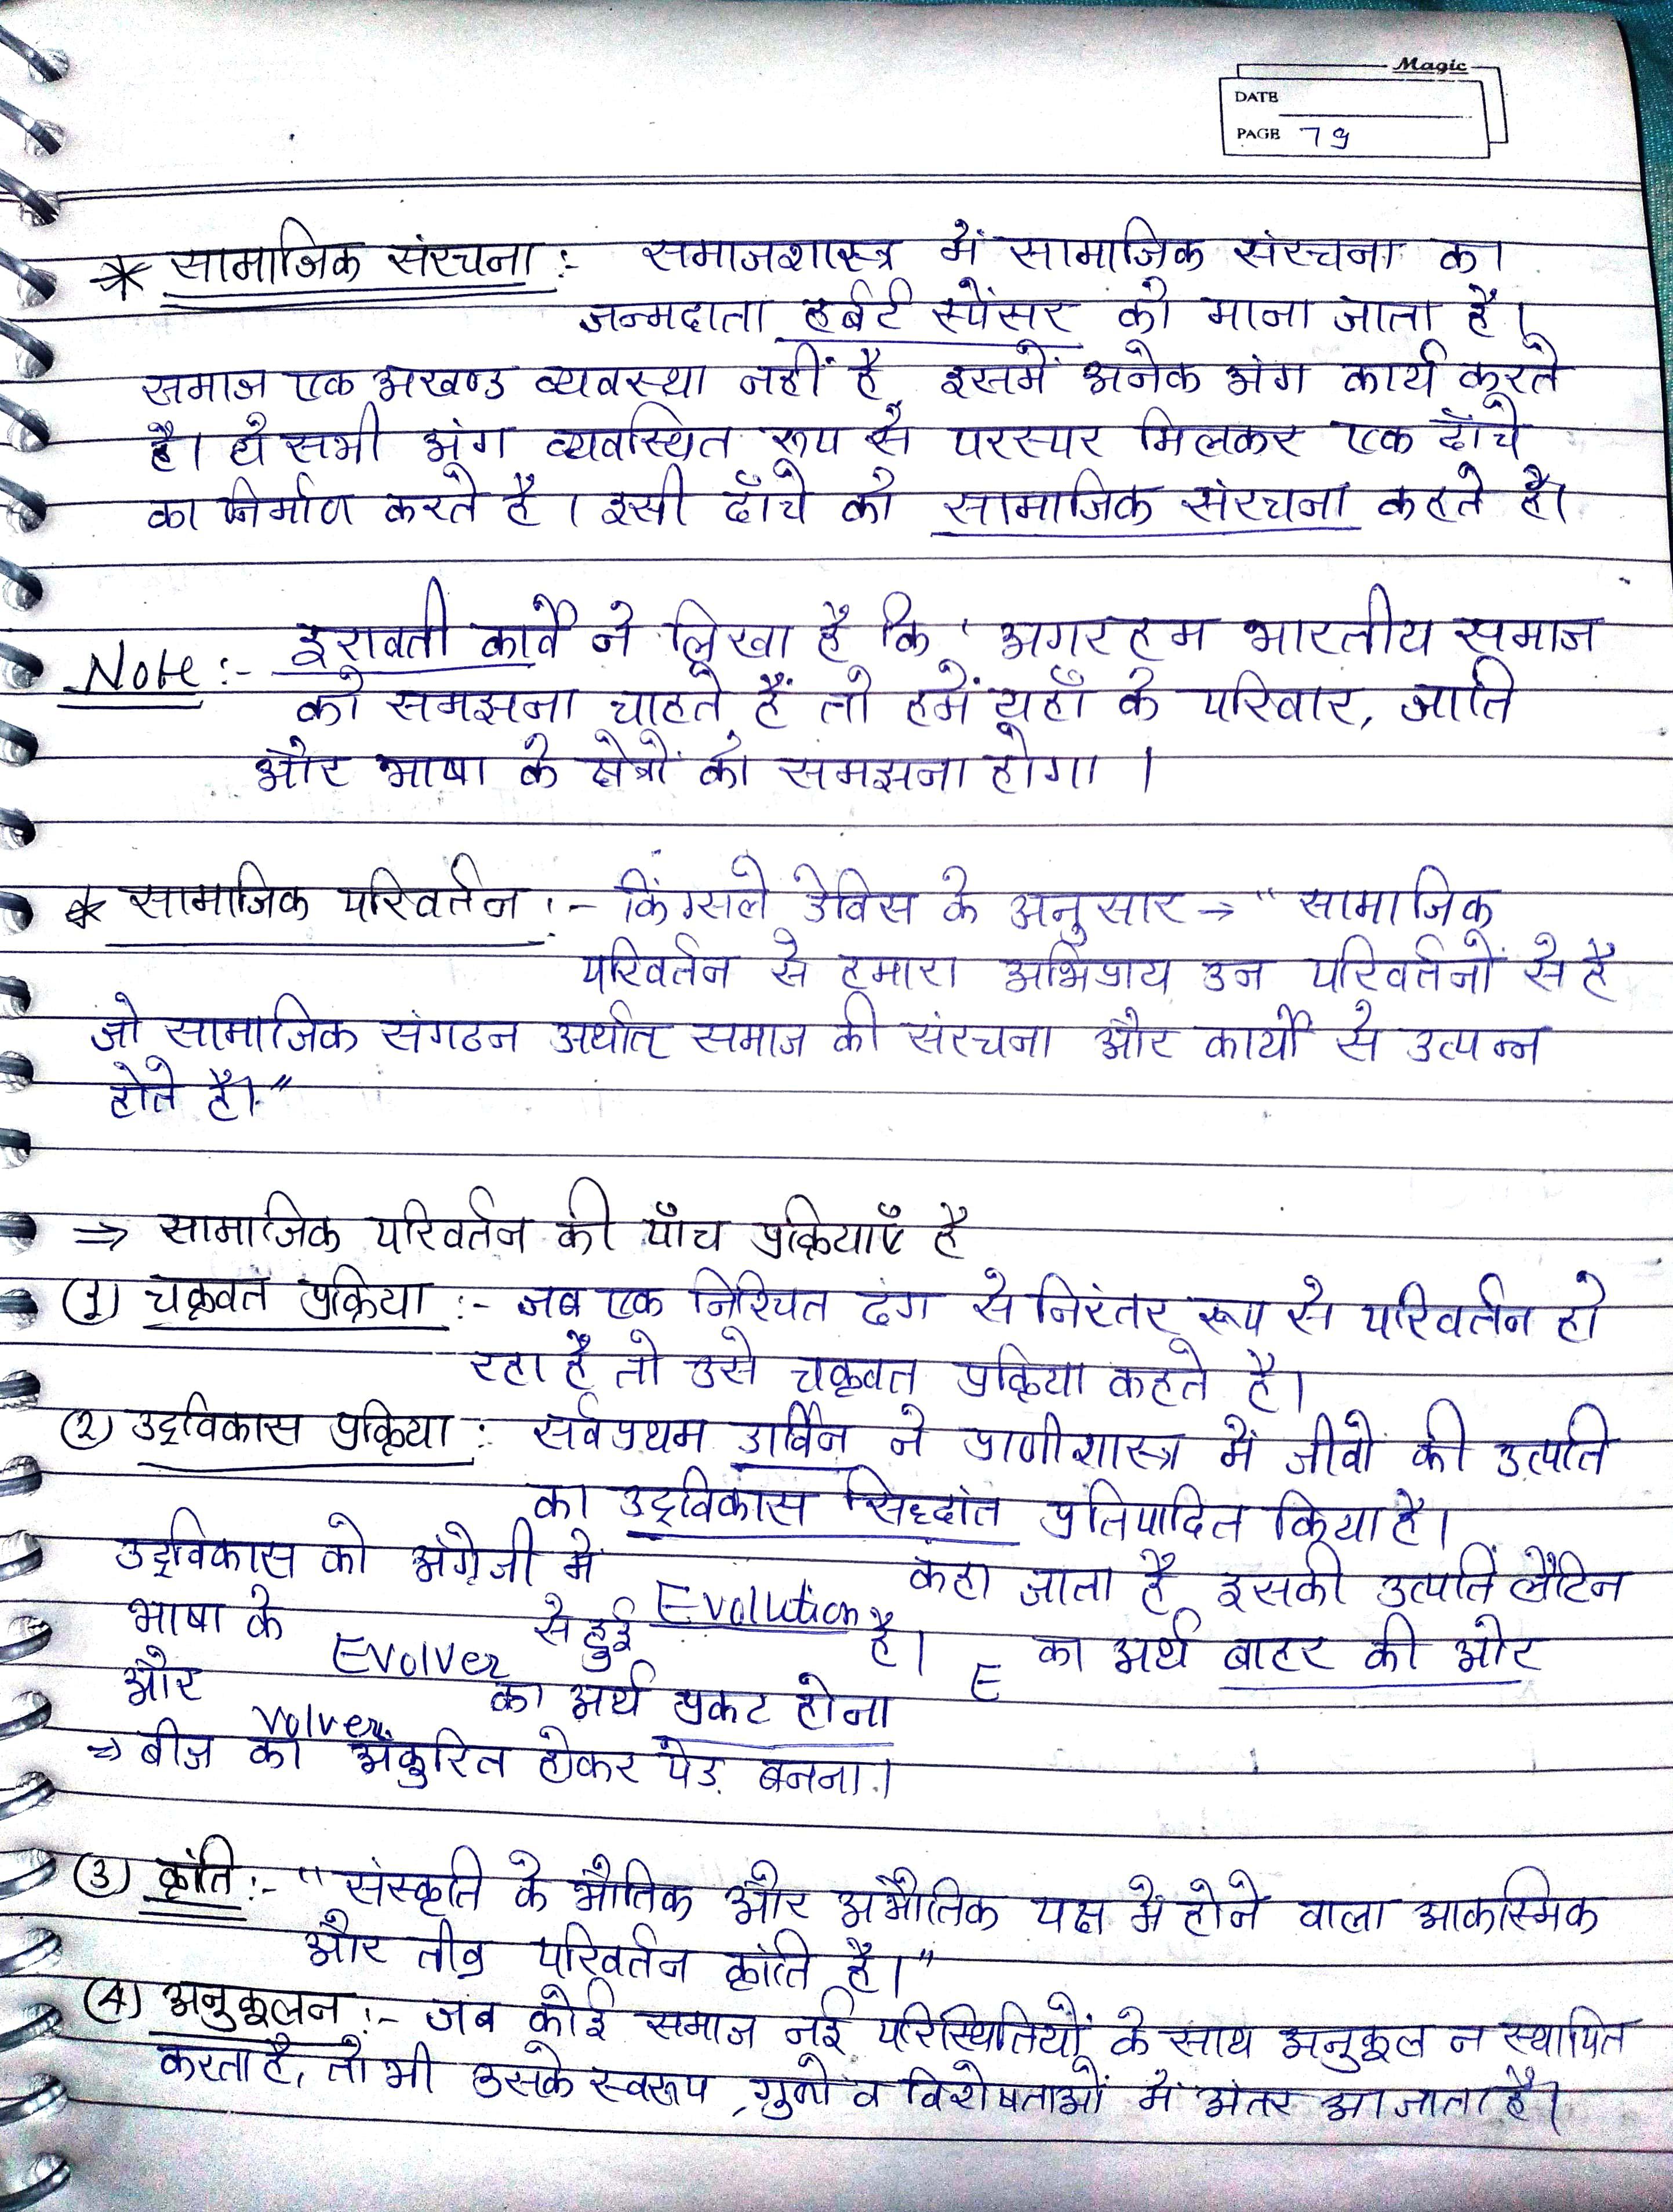 Magic
DATE
PAGE 79
* सामाजिक संरचना :- समाजशास्त्र में सामाजिक संरचना का
जन्मदाता हर्बर्ट स्पेंसर को माना जाता है।
समाज एक अखण्ड व्यवस्था नहीं है इसमें अनेक अंग कार्य करते
है। ये सभी अंग व्यवस्थित रूप से परस्पर मिलकर एक ढाँचे
का निर्माण करते है। इसी ढाँचे को सामाजिक संरचना कहते है।
Note :- इरावती कार्वे ने लिखा है कि ' अगर हम भारतीय समाज
को समझना चाहते हैं तो हमें यहाँ के परिवार, जाति
और भाषा के क्षेत्रों को समझना होगा ।
* सामाजिक परिवर्तन :- किंग्सले डेविस के अनुसार → " सामाजिक
परिवर्तन से हमारा अभिप्राय उन परिवर्तनों से है
जो सामाजिक संगठन अर्थात् समाज की संरचना और कार्यों से उत्पन्न
होते है।"
⇒ सामाजिक परिवर्तन की पाँच प्रक्रियाएँ है
(1) चक्रवत प्रक्रिया :- जब एक निश्चित ढंग से निरंतर रूप से परिवर्तन हो
रहा है तो उसे चक्रवत प्रक्रिया कहते है।
(2) उद्दविकास प्रक्रिया : सर्वप्रथम डार्विन ने प्राणीशास्त्र में जीवो की उत्पति
का उद्दविकास सिद्दांत प्रतिपादित किया है।
उद्दविकास को अंग्रेजी में Evolution कहा जाता है इसकी उत्पति लैटिन
भाषा के Evolver से हुई है। E का अर्थ बाहर की ओर
और Volver का अर्थ प्रकट होना
⇒ बीज का अंकुरित होकर पेड़ बनना।
(3) क्रांति :- "संस्कृति के भौतिक और अभौतिक पक्ष में होने वाला आकस्मिक
और तीव्र परिवर्तन क्रांति है।"
(4) अनुकूलन :- जब कोई समाज नई परिस्थितियों के साथ अनुकूल न स्थापित
करता है, तो भी उसके स्वरूप, गुणो व विशेषताओं में अंतर आ जाता है।